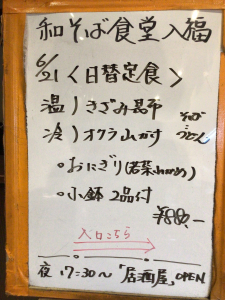 和そば食堂 入福
6/21 〈日替定食〉
温)きざみ昆布
冷)オクラ山かけ
そば
うどん
○おにぎり(若菜わかめ)
○小鉢 2品付
¥880.-
入口こちら
夜 17:30〜「居酒屋」OPEN